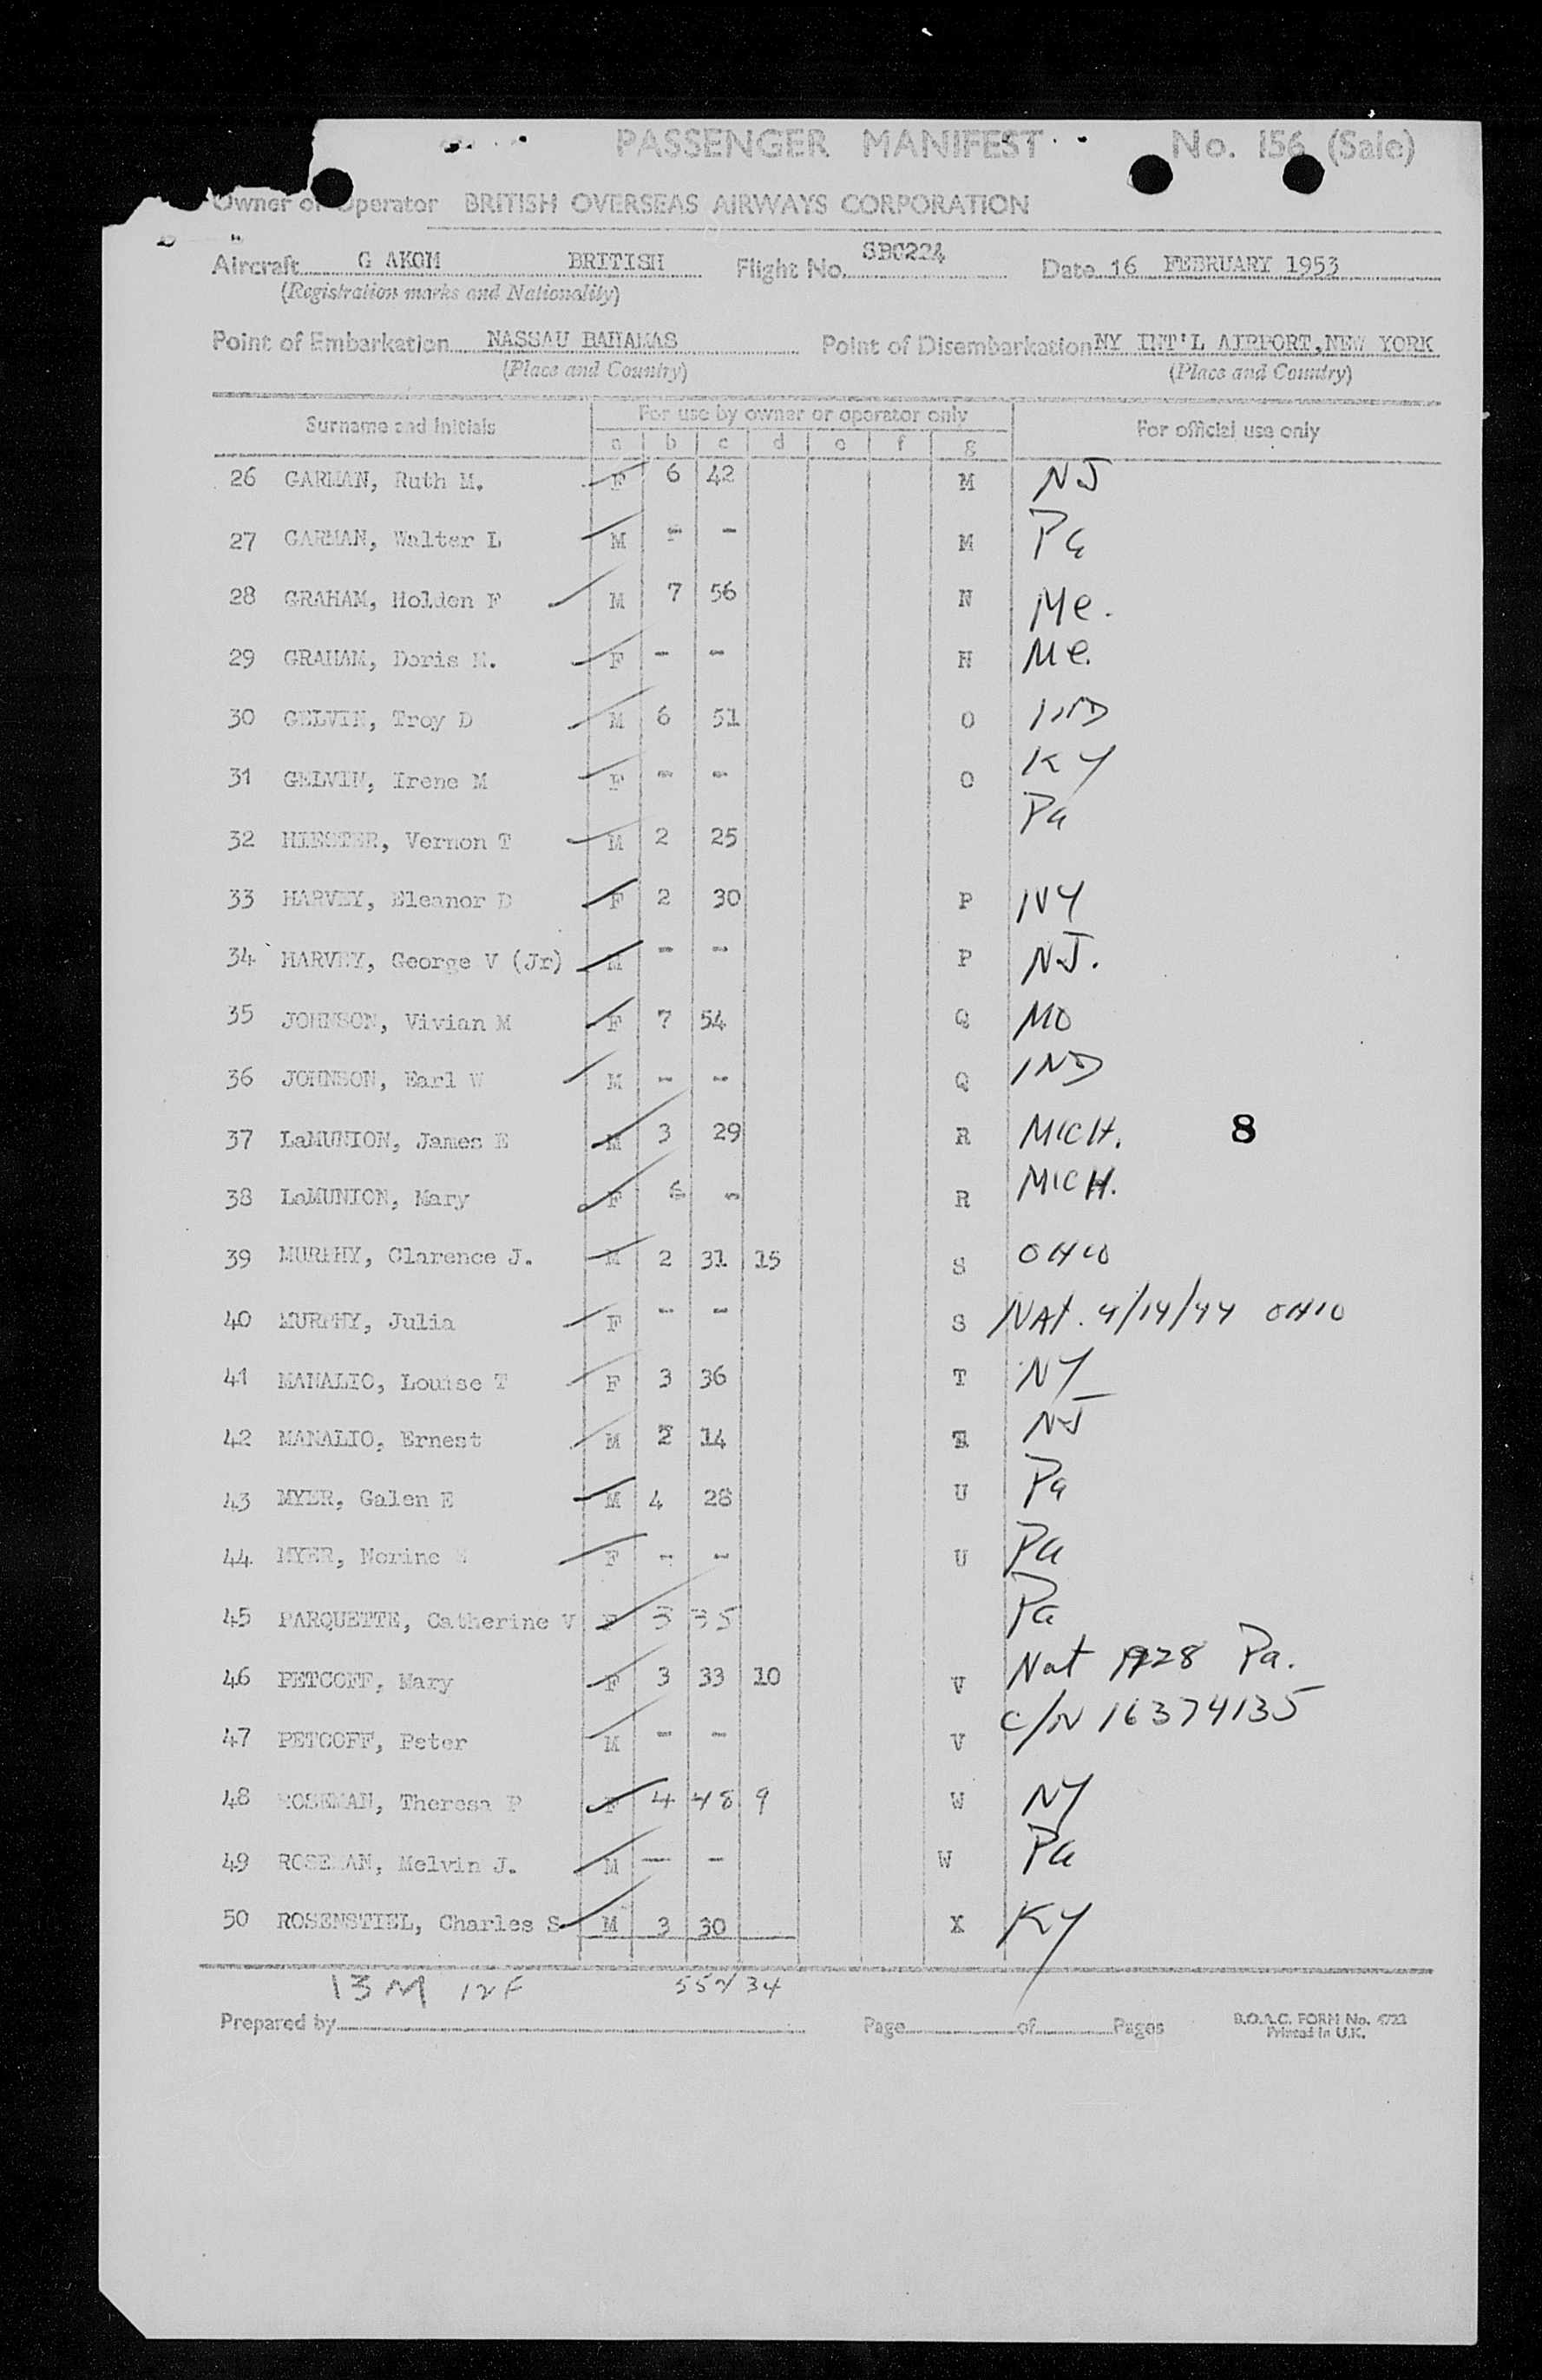 PASSENGER MANIFEST No. 156 (Sale)
Owner or Operator BRITISH OVERSEAS AIRWAYS CORPORATION
Aircraft G AKOM BRITISH Flight No. SBC224 Date 16 FEBRUARY 1953
(Registration marks and Nationality)
Point of Embarkation NASSAU BAHAMAS Point of Disembarkation NY INT'L AIRPORT, NEW YORK
(Place and Country) (Place and Country)
Surname and Initials For use by owner or operator only For official use only
a b c d e f g
26 GARMAN, Ruth M. F 6 42 M NJ
27 GARMAN, Walter L M - - M Pa
28 GRAHAM, Holden F M 7 56 N Me.
29 GRAHAM, Doris M. F - - N Me.
30 GELVIN, Troy D M 6 51 O IND
31 GELVIN, Irene M F - - O KY
32 HIESTER, Vernon T M 2 25 Pa
33 HARVEY, Eleanor D F 2 30 P NY
34 HARVEY, George V (Jr) M - - P NJ.
35 JOHNSON, Vivian M F 7 54 Q MO
36 JOHNSON, Earl W M - - Q IND
37 LaMUNION, James E M 3 29 R MICH. 8
38 LaMUNION, Mary F 6 - R MICH.
39 MURPHY, Clarence J. M 2 31 15 S OHIO
40 MURPHY, Julia F - - S NAt. 4/14/44 OHIO
41 MANALIO, Louise T F 3 36 T NY
42 MANALIO, Ernest M 2 14 T NJ
43 MYER, Galen E M 4 28 U Pa
44 MYER, Norine F - - U Pa
45 PARQUETTE, Catherine V F 3 35 Pa
46 PETCOFF, Mary F 3 33 10 V Nat 1928 Pa.
47 PETCOFF, Peter M - - V C/N 16374135
48 ROSEMAN, Theresa P F 4 48 9 W NY
49 ROSEMAN, Melvin J. M - - W Pa
50 ROSENSTIEL, Charles S M 3 30 X KY
13 M 12 F 552/34
Prepared by Page of Pages B.O.A.C. FORM No.
Printed in U.K.